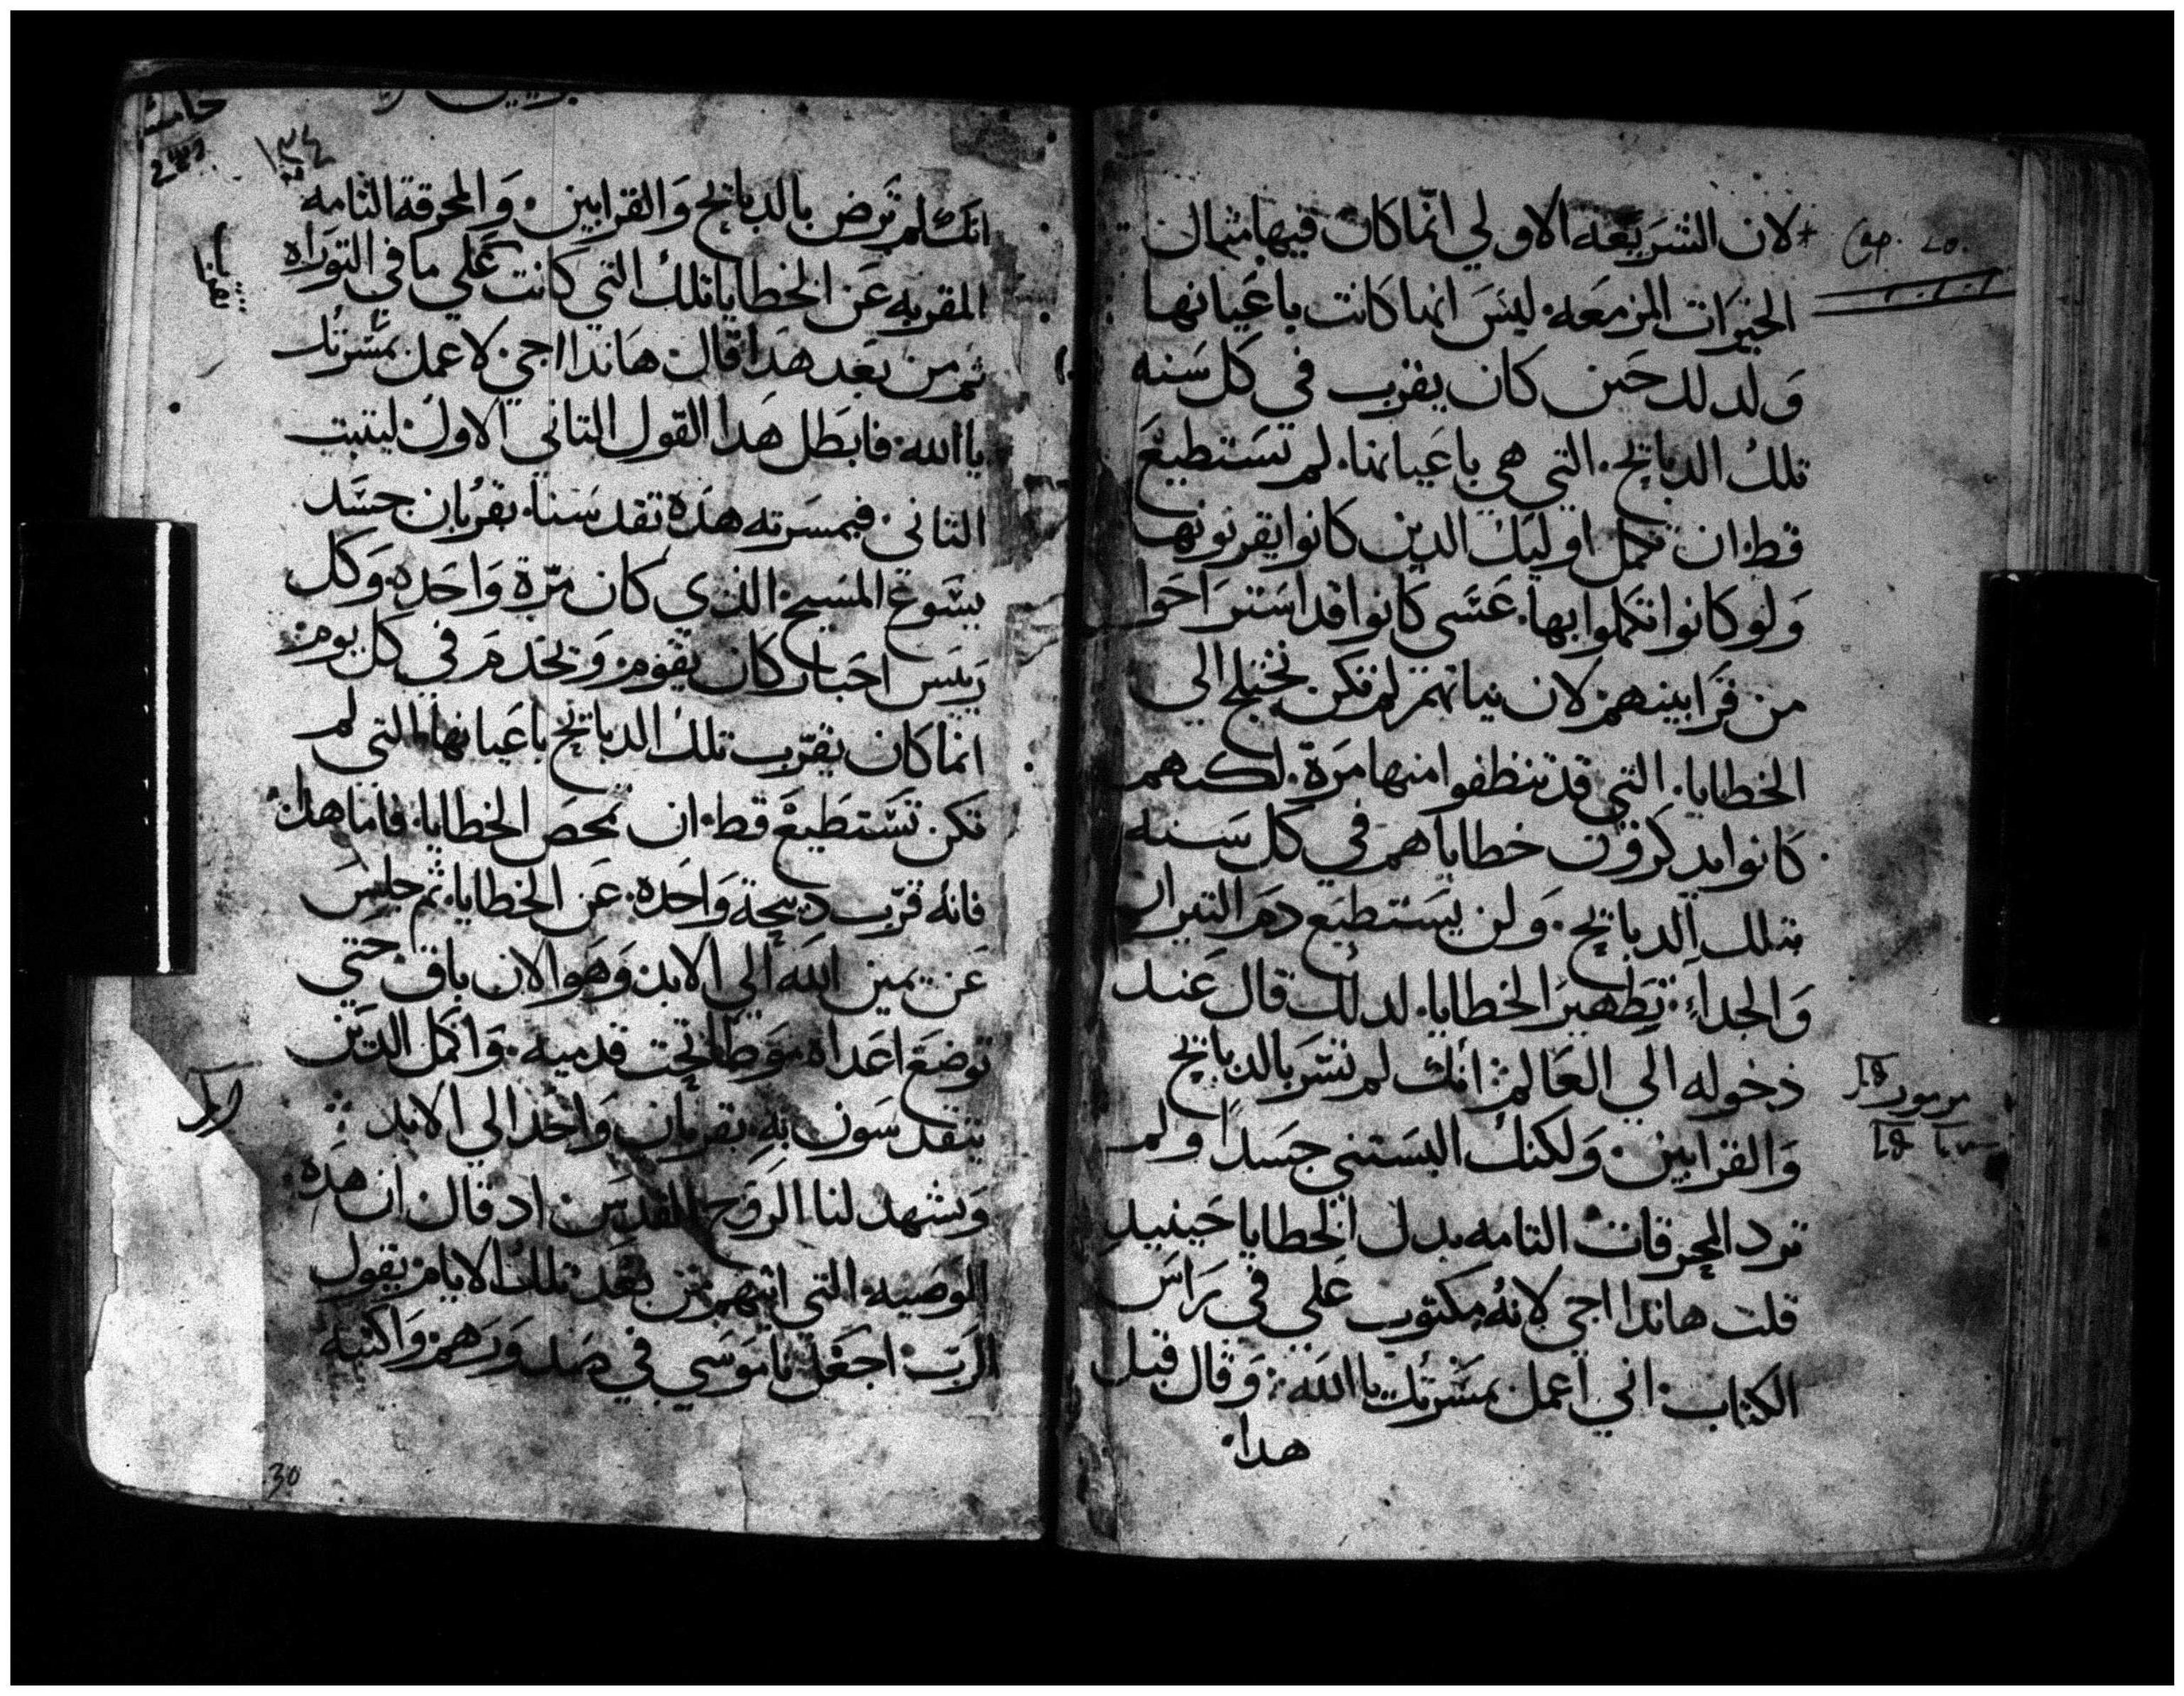 Cap. 10.
لان الشريعه الاولي انما كان فيها مثال
الخيرات المزمعه ليس انما كانت باعيانها
ولدلد حين كان يقرب في كل سنه
تلك الدبايح التي هي باعيانها لم تستطيع
قط ان تكمل اوليك الدين كانوا يقربونها
ولو كانوا تكملوا بها عسى كانوا قد استراحوا
من قرابينهم لان نياتهم لم تكن تختلج الى
الخطايا التي قد تنظفوا منها مرة لكنهم
كانوا يدكرون خطاياهم في كل سنه
بتلك الدبايح ولن يستطيع دم التيران
والجداء تطهير الخطايا لدلك قال عند
دخوله الي العالم انك لم تسر بالدبايح
مزمور
والقرابين ولكنك البستني جسدا ولم
ترد المحرقات التامه بدل الخطايا حينيد
قلت هاندا اجي لانه مكتوب علي في راس
الكتاب اني اعمل بمسرتك يا الله وقال قبل
هدا
١٣٤
انك لم ترض بالدبايح والقرابين والمحرقة التامه
المقربه عن الخطايا تلك التي كانت علي ما في التوراه
ثم من بعد هدا قال هاندا اجي لاعمل بمسرتك
يا الله فابطل هدا القول التاني الاول ليتبت
التاني فبمسرته هده تقدسنا بقربان جسد
يسوع المسيح الذي كان مرة واحده وكل
رييس احبار كان يقوم ويخدم في كل يوم
انما كان يقرب تلك الدبايح باعيانها التي لم
تكن تستطيع قط ان تمحص الخطايا فاما هدا
فانه قرب دبيحة واحده عن الخطايا ثم جلس
عن يمين الله الي الابد وهو الان باق حتي
توضع اعداه موطا تحت قدميه واكمل الدين
يتقدسون به بقربان واحد الي الابد
ويشهد لنا الروح القدس اد قال ان هده
الوصيه التي اتيتهم من بعد تلك الايام يقول
الرب اجعل ناموسي في صدورهم واكتبه
30